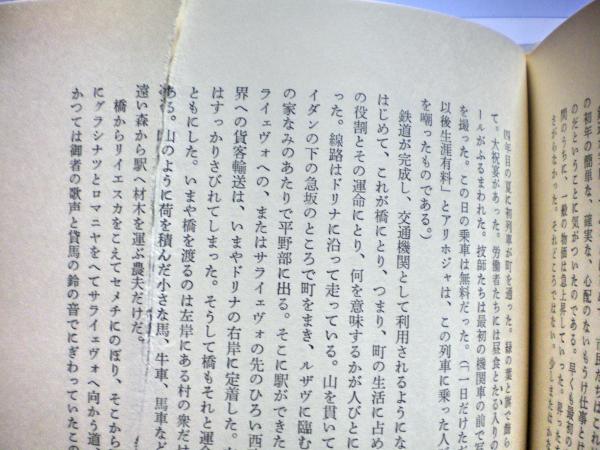 市民たちはこれ
の初年の簡単な、確実な、心配のないもうけ仕事とは
のだということに気がついたのである。早くも最初の
間のうちに、一般の物価は急上昇していった。昇った
さがらなかった。それどころではない。少しまたは
四年目の夏に初列車が町を通った。緑の葉と旗で飾ら
て。大祝宴があった。労働者たちには昼食とたる入りの
ールがふるまわれた。技師たちは最初の機関車の前で写
を撮った。この日の乗車は無料だった。(「一日だけただ
以後生涯有料」とアリホジャは、この列車に乗った人
を嘲ったものである。)
鉄道が完成し、交通機関として利用されるようにな
はじめて、これが橋にとり、つまり、町の生活に占め
の役割とその運命にとり、何を意味するかが人びとに
った。線路はドリナに沿って走っている。山を貫いて
イダンの下の急坂のところで町をまき、ルザヴに臨む
の家なみのあたりで平野部に出る。そこに駅ができた
ライェヴォへの、またはサライェヴォの先のひろい西
界への貨客輸送は、いまやドリナの右岸に定着した。
はすっかりさびれてしまった。そうして橋もそれと運
ともにした。いまや橋を渡るのは左岸にある村の衆だけ
ある。山のように荷を積んだ小さな馬、牛車、馬車など
遠い森から駅へ材木を運ぶ農夫だけだ。
橋からリイエスカをこえてセメチにのぼり、そこから
にグラシナツとロマニヤをへてサライェヴォへ向かう道
かつては御者の歌声と貸馬の鈴の音でにぎわっていたこの